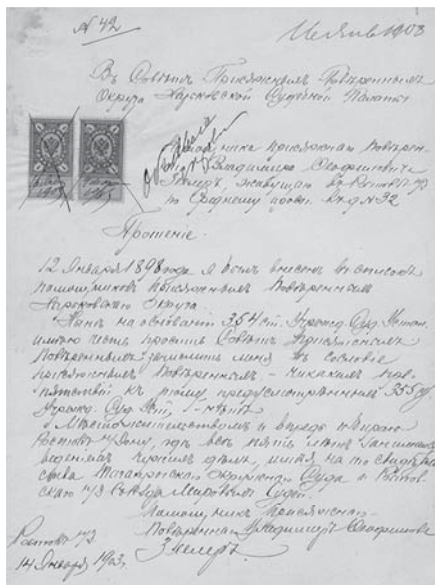 № 42
1903
Въ Советъ Присяжныхъ Повѣренныхъ
Округа Харьковской Судебной Палаты
Помощника присяжнаго повѣрен-
Владимира
Зеелеръ, живущаго въ Ростовѣ н/Д
по Среднему просп. въ д № 32
Прошеніе.
12 Января 1898 года я былъ внесенъ въ списокъ
помощниковъ присяжныхъ повѣренныхъ
Харьковскаго Округа.
на основаніи 354 ст. Учрежд. Суд. Устан.
имѣю честь просить Совѣтъ Присяжныхъ
Повѣренныхъ зачислить меня въ сословіе
присяжныхъ повѣренныхъ - никакихъ пре-
пятствій къ тому предусмотрѣнныхъ 355 ст.
Учрежд. Суд. Уст, - нѣтъ.
Мѣстожительствомъ и впредь избираю
Ростовъ н/Дону, гдѣ всѣ пять лѣтъ занимался
веденіемъ чужихъ дѣлъ, имѣя на то свидѣтель-
ства Таганрогскаго Окружнаго Суда и Ростов-
скаго н/Д Съѣзда Мировыхъ Судей.
Помощникъ присяжнаго
повѣреннаго Владимиръ
Зеелеръ
Ростовъ н/Д
14 Января 1903 г.